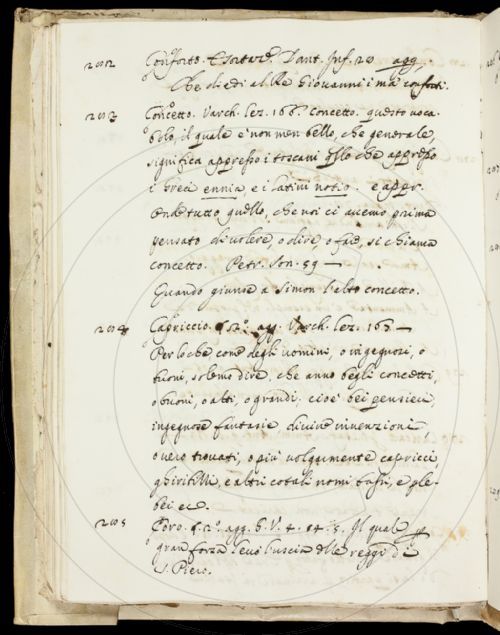 Conforto. Esortare. Dant. Inf. 28 agg.
Che diedi al Re Giovanni i ma' conforti.
Concetto. Varch. Lez. 166. Concetto. questo voca-
bolo, il quale è non men bello, che generale,
significa appresso i toscani qllo che appresso
i Greci ennia, e i latini notio. e appr.
Onde tutto quello, che noi ci avemo prima
pensato di volere, o dire, o fare, si chiama
concetto. Petr. Son. 59 —
Quando giunse a Simon l'alto concetto.
Capriccio. agg. Varch. Lez. 166 —
Per lo che come degli uomini, o ingegnosi, o
buoni, solemo dire, che anno begli concetti,
o buoni, o alti, o grandi; cioè bei pensieri
ingegnose fantasie divine invenzioni
overo trovati, o più volgarmente capricci,
ghiribilli, e altri cotali nomi bassi, e ple-
bei ec.
Coro. agg. G. V. 4. Il quale p
gran forza levò l'uscia delle reggi di
S. Piero.